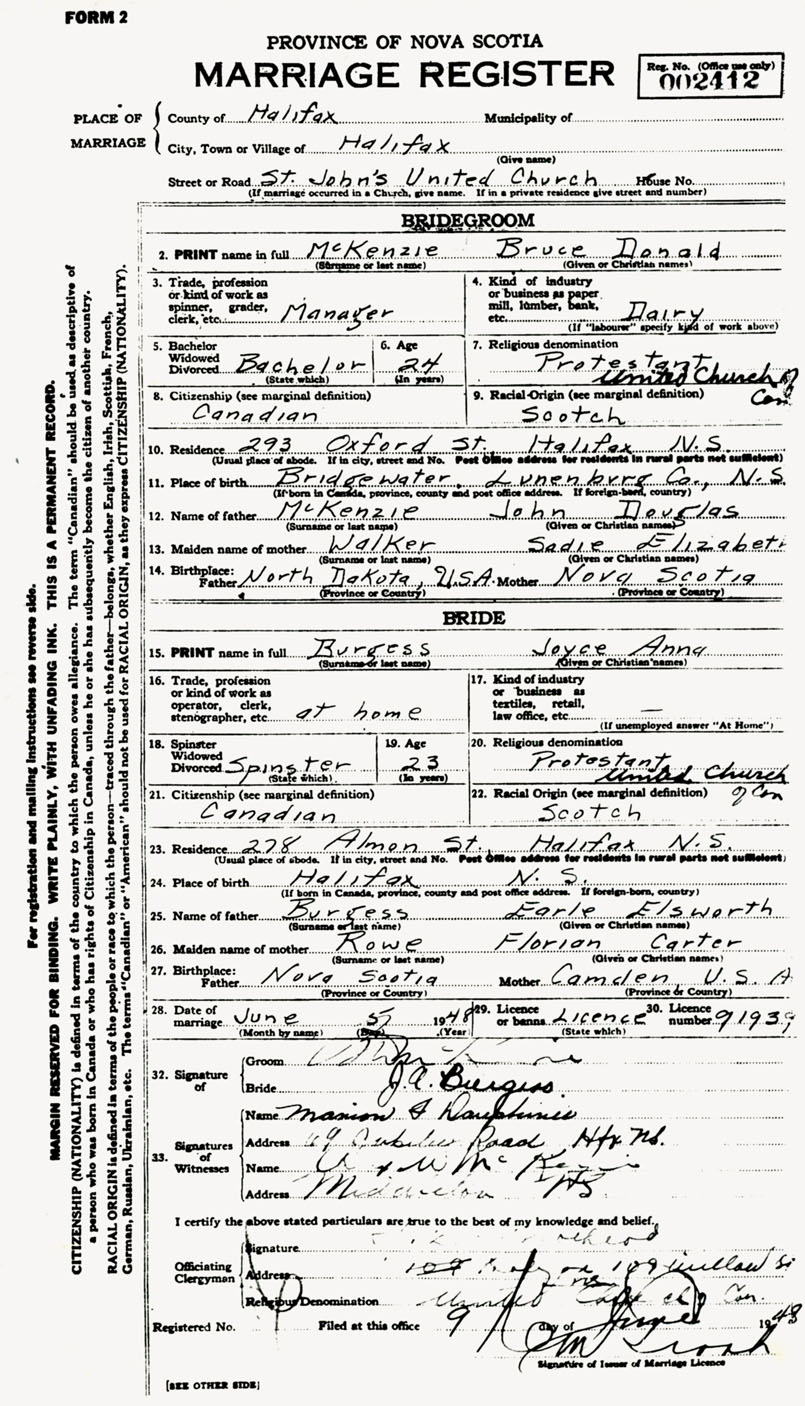 FORM 2
PROVINCE OF NOVA SCOTIA
MARRIAGE REGISTER
Reg. No. (Office use only)
002412
PLACE OF MARRIAGE
County of Halifax Municipality of
City, Town or Village of Halifax
(Give name)
Street or Road St. John's United Church House No.
(If marriage occurred in a Church, give name. If in a private residence give street and number)
BRIDEGROOM
2. PRINT name in full McKenzie Bruce Donald
(Surname or last name) (Given or Christian names)
3. Trade, profession or kind of work as spinner, grader, clerk, etc. Manager
4. Kind of industry or business as paper mill, lumber, bank, etc. Dairy
(If "labourer" specify kind of work above)
5. Bachelor Widowed Divorced Bachelor
(State which)
6. Age 24
(In years)
7. Religious denomination Protestant
United Church of Can.
8. Citizenship (see marginal definition)
Canadian
9. Racial Origin (see marginal definition)
Scotch
10. Residence 293 Oxford St. Halifax N.S.
(Usual place of abode. If in city, street and No. Post Office address for residents in rural parts not sufficient)
11. Place of birth Bridgewater, Lunenburg Co., N.S.
(If born in Canada, province, county and post office address. If foreign-born, country)
12. Name of father McKenzie John Douglas
(Surname or last name) (Given or Christian names)
13. Maiden name of mother Walker Sadie Elizabeth
(Surname or last name) (Given or Christian names)
14. Birthplace: Father North Dakota, U.S.A. Mother Nova Scotia
(Province or Country) (Province or Country)
BRIDE
15. PRINT name in full Burgess Joyce Anna
(Surname or last name) (Given or Christian names)
16. Trade, profession or kind of work as operator, clerk, stenographer, etc. at home
17. Kind of industry or business as textiles, retail, law office, etc. —
(If unemployed answer "At Home")
18. Spinster Widowed Divorced Spinster
(State which)
19. Age 23
(In years)
20. Religious denomination Protestant
United Church of Can
21. Citizenship (see marginal definition)
Canadian
22. Racial Origin (see marginal definition)
Scotch
23. Residence 278 Almon St. Halifax N.S.
(Usual place of abode. If in city, street and No. Post Office address for residents in rural parts not sufficient)
24. Place of birth Halifax N.S.
(If born in Canada, province, county and post office address. If foreign-born, country)
25. Name of father Burgess Earle Elsworth
(Surname or last name) (Given or Christian names)
26. Maiden name of mother Rowe Florian Carter
(Surname or last name) (Given or Christian names)
27. Birthplace: Father Nova Scotia Mother Camden U.S.A
(Province or Country) (Province or Country)
28. Date of marriage June 5 1948
(Month by name) (Day) (Year
29. Licence or banns Licence
(State which)
30. Licence number 91939
32. Signature of
Groom
Bride J.A. Burgess.
33. Signatures of Witnesses
Name Marion
Address 69 Jubilee Road Hfx NS.
Name McKenzie
Address Middleton NS.
I certify the above stated particulars are true to the best of my knowledge and belief.
Officiating Clergyman
Signature
Address 109 Willow St
Religious Denomination United Church Can.
Registered No. Filed at this office 9 day of June 1948
Signature of Issuer of Marriage Licence
[SEE OTHER SIDE]
For registration and mailing instructions see reverse side.
MARGIN RESERVED FOR BINDING. WRITE PLAINLY, WITH UNFADING INK. THIS IS A PERMANENT RECORD.
CITIZENSHIP (NATIONALITY) is defined in terms of the country to which the person owes allegiance. The term "Canadian" should be used as descriptive of
a person who was born in Canada or who has rights of Citizenship in Canada, unless he or she has subsequently become the citizen of another country.
RACIAL ORIGIN is defined in terms of the people or race to which the person—traced through the father—belongs, whether English, Irish, Scottish, French,
German, Russian, Ukrainian, etc. The terms "Canadian" or "American" should not be used for RACIAL ORIGIN, as they express CITIZENSHIP (NATIONALITY).